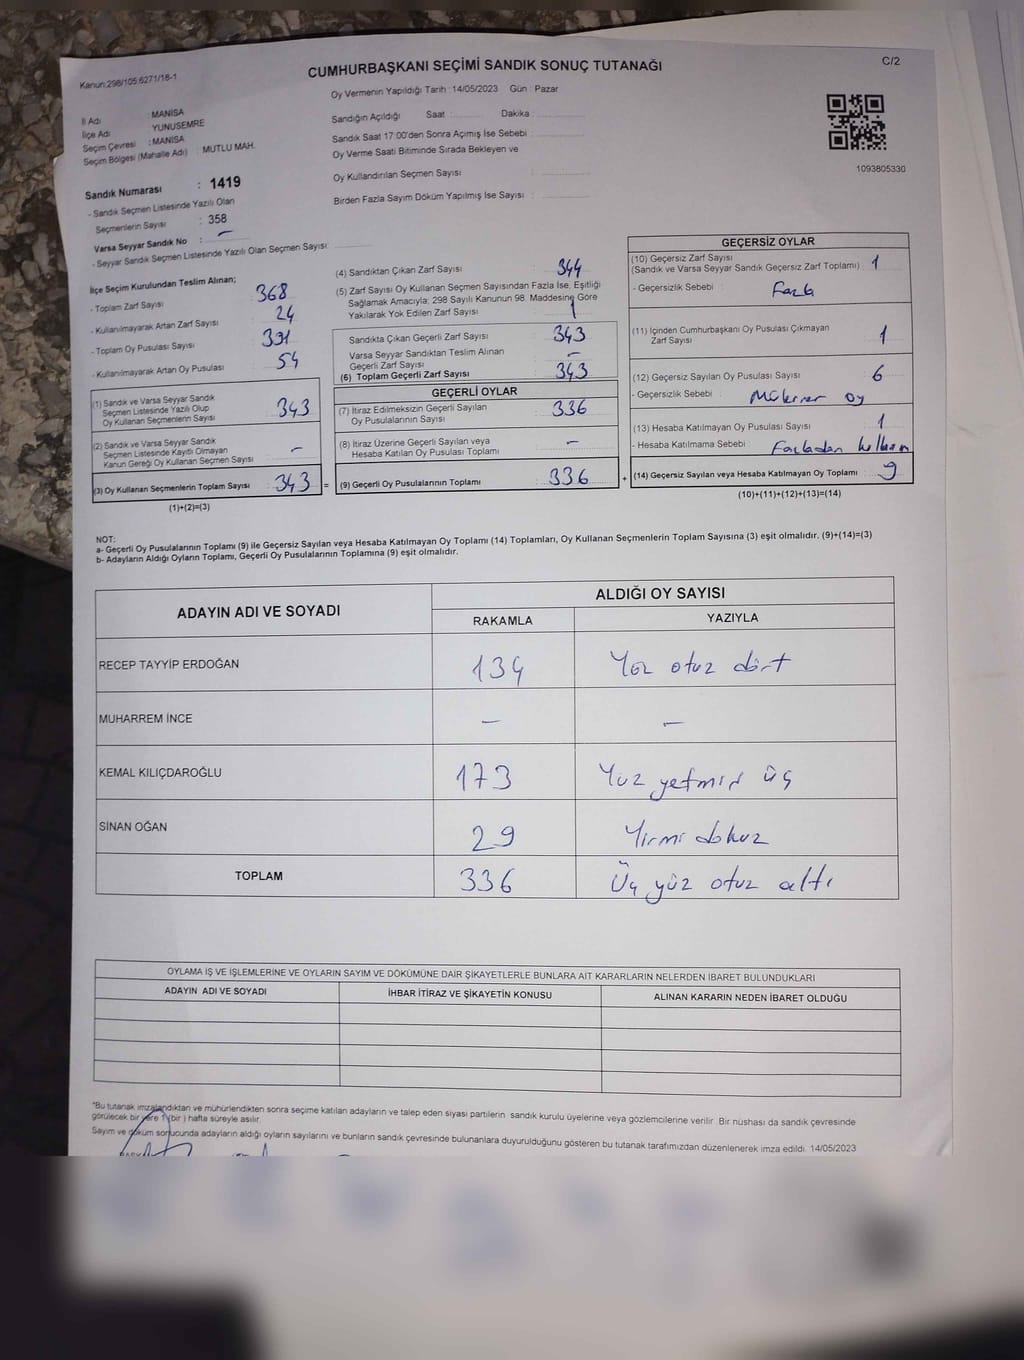 Kanun:298/105;6271/18-1
CUMHURBAŞKANI SEÇİMİ SANDIK SONUÇ TUTANAĞI
C/2
Oy Vermenin Yapıldığı Tarih : 14/05/2023 Gün : Pazar
İl Adı : MANİSA
İlçe Adı YUNUSEMRE
Seçim Çevresi : MANİSA
Seçim Bölgesi (Mahalle Adı) : MUTLU MAH.
Sandık Numarası : 1419
- Sandık Seçmen Listesinde Yazılı Olan
Seçmenlerin Sayısı : 358
Varsa Seyyar Sandık No : -
- Seyyar Sandık Seçmen Listesinde Yazılı Olan Seçmen Sayısı:
Sandığın Açıldığı Saat : Dakika :
Sandık Saat 17:00'den Sonra Açımış İse Sebebi :
Oy Verme Saati Bitiminde Sırada Bekleyen ve
Oy Kullandırılan Seçmen Sayısı :
Birden Fazla Sayım Döküm Yapılmış İse Sayısı :
1093805330
İlçe Seçim Kurulundan Teslim Alınan;
- Toplam Zarf Sayısı : 368
- Kullanılmayarak Artan Zarf Sayısı : 24
- Toplam Oy Pusulası Sayısı : 391
- Kullanılmayarak Artan Oy Pusulası : 54
(1) Sandık ve Varsa Seyyar Sandık
Seçmen Listesinde Yazılı Olup
Oy Kullanan Seçmenlerin Sayısı : 343
(2) Sandık ve Varsa Seyyar Sandık
Seçmen Listesinde Kayıtlı Olmayan
Kanun Gereği Oy Kullanan Seçmen Sayısı : -
(3) Oy Kullanan Seçmenlerin Toplam Sayısı : 343 =
(1)+(2)=(3)
(4) Sandıktan Çıkan Zarf Sayısı : 344
(5) Zarf Sayısı Oy Kullanan Seçmen Sayısından Fazla İse, Eşitliği
Sağlamak Amacıyla; 298 Sayılı Kanunun 98. Maddesine Göre
Yakılarak Yok Edilen Zarf Sayısı : 1
Sandıkta Çıkan Geçerli Zarf Sayısı : 343
Varsa Seyyar Sandıktan Teslim Alınan
Geçerli Zarf Sayısı : -
(6) Toplam Geçerli Zarf Sayısı : 343
GEÇERLİ OYLAR
(7) İtiraz Edilmeksizin Geçerli Sayılan
Oy Pusulalarının Sayısı : 336
(8) İtiraz Üzerine Geçerli Sayılan veya
Hesaba Katılan Oy Pusulası Toplamı : -
(9) Geçerli Oy Pusulalarının Toplamı : 336 +
GEÇERSİZ OYLAR
(10) Geçersiz Zarf Sayısı
(Sandık ve Varsa Seyyar Sandık Geçersiz Zarf Toplamı) : 1
- Geçersizlik Sebebi : Fazla
(11) İçinden Cumhurbaşkanı Oy Pusulası Çıkmayan
Zarf Sayısı : 1
(12) Geçersiz Sayılan Oy Pusulası Sayısı : 6
- Geçersizlik Sebebi : Mükerrer oy
(13) Hesaba Katılmayan Oy Pusulası Sayısı : 1
- Hesaba Katılmama Sebebi : Fazladan
(14) Geçersiz Sayılan veya Hesaba Katılmayan Oy Toplamı : 9
(10)+(11)+(12)+(13)=(14)
NOT:
a- Geçerli Oy Pusulalarının Toplamı (9) ile Geçersiz Sayılan veya Hesaba Katılmayan Oy Toplamı (14) Toplamları, Oy Kullanan Seçmenlerin Toplam Sayısına (3) eşit olmalıdır. (9)+(14)=(3)
b- Adayların Aldığı Oyların Toplamı, Geçerli Oy Pusulalarının Toplamına (9) eşit olmalıdır.
ADAYIN ADI VE SOYADI
ALDIĞI OY SAYISI
RAKAMLA YAZIYLA
RECEP TAYYİP ERDOĞAN 134 Yüz otuz dört
MUHARREM İNCE - -
KEMAL KILIÇDAROĞLU 173 Yüz yetmiş üç
SİNAN OĞAN 29 Yirmi dokuz
TOPLAM 336 Üç yüz otuz altı
OYLAMA İŞ VE İŞLEMLERİNE VE OYLARIN SAYIM VE DÖKÜMÜNE DAİR ŞİKAYETLERLE BUNLARA AİT KARARLARIN NELERDEN İBARET BULUNDUKLARI
ADAYIN ADI VE SOYADI İHBAR İTİRAZ VE ŞİKAYETİN KONUSU ALINAN KARARIN NEDEN İBARET OLDUĞU
"Bu tutanak imzalandıktan ve mühürlendikten sonra seçime katılan adayların ve talep eden siyasi partilerin sandık kurulu üyelerine veya gözlemcilerine verilir. Bir nüshası da sandık çevresinde
görülecek bir yere 1 (bir ) hafta süreyle asılır.
Sayım ve döküm sonucunda adayların aldığı oyların sayılarını ve bunların sandık çevresinde bulunanlara duyurulduğunu gösteren bu tutanak tarafımızdan düzenlenerek imza edildi. 14/05/2023